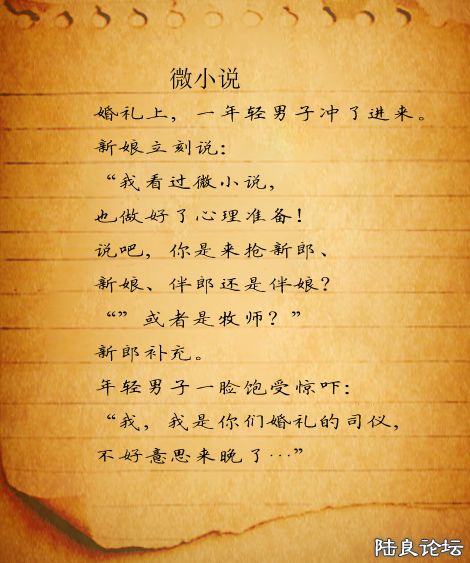 微小说
婚礼上，一年轻男子冲了进来。
新娘立刻说：
“我看过微小说，
也做好了心理准备！
说吧，你是来抢新郎、
新娘、伴郎还是伴娘？
“”或者是牧师？”
新郎补充。
年轻男子一脸饱受惊吓：
“我，我是你们婚礼的司仪，
不好意思来晚了…”
陆良论坛